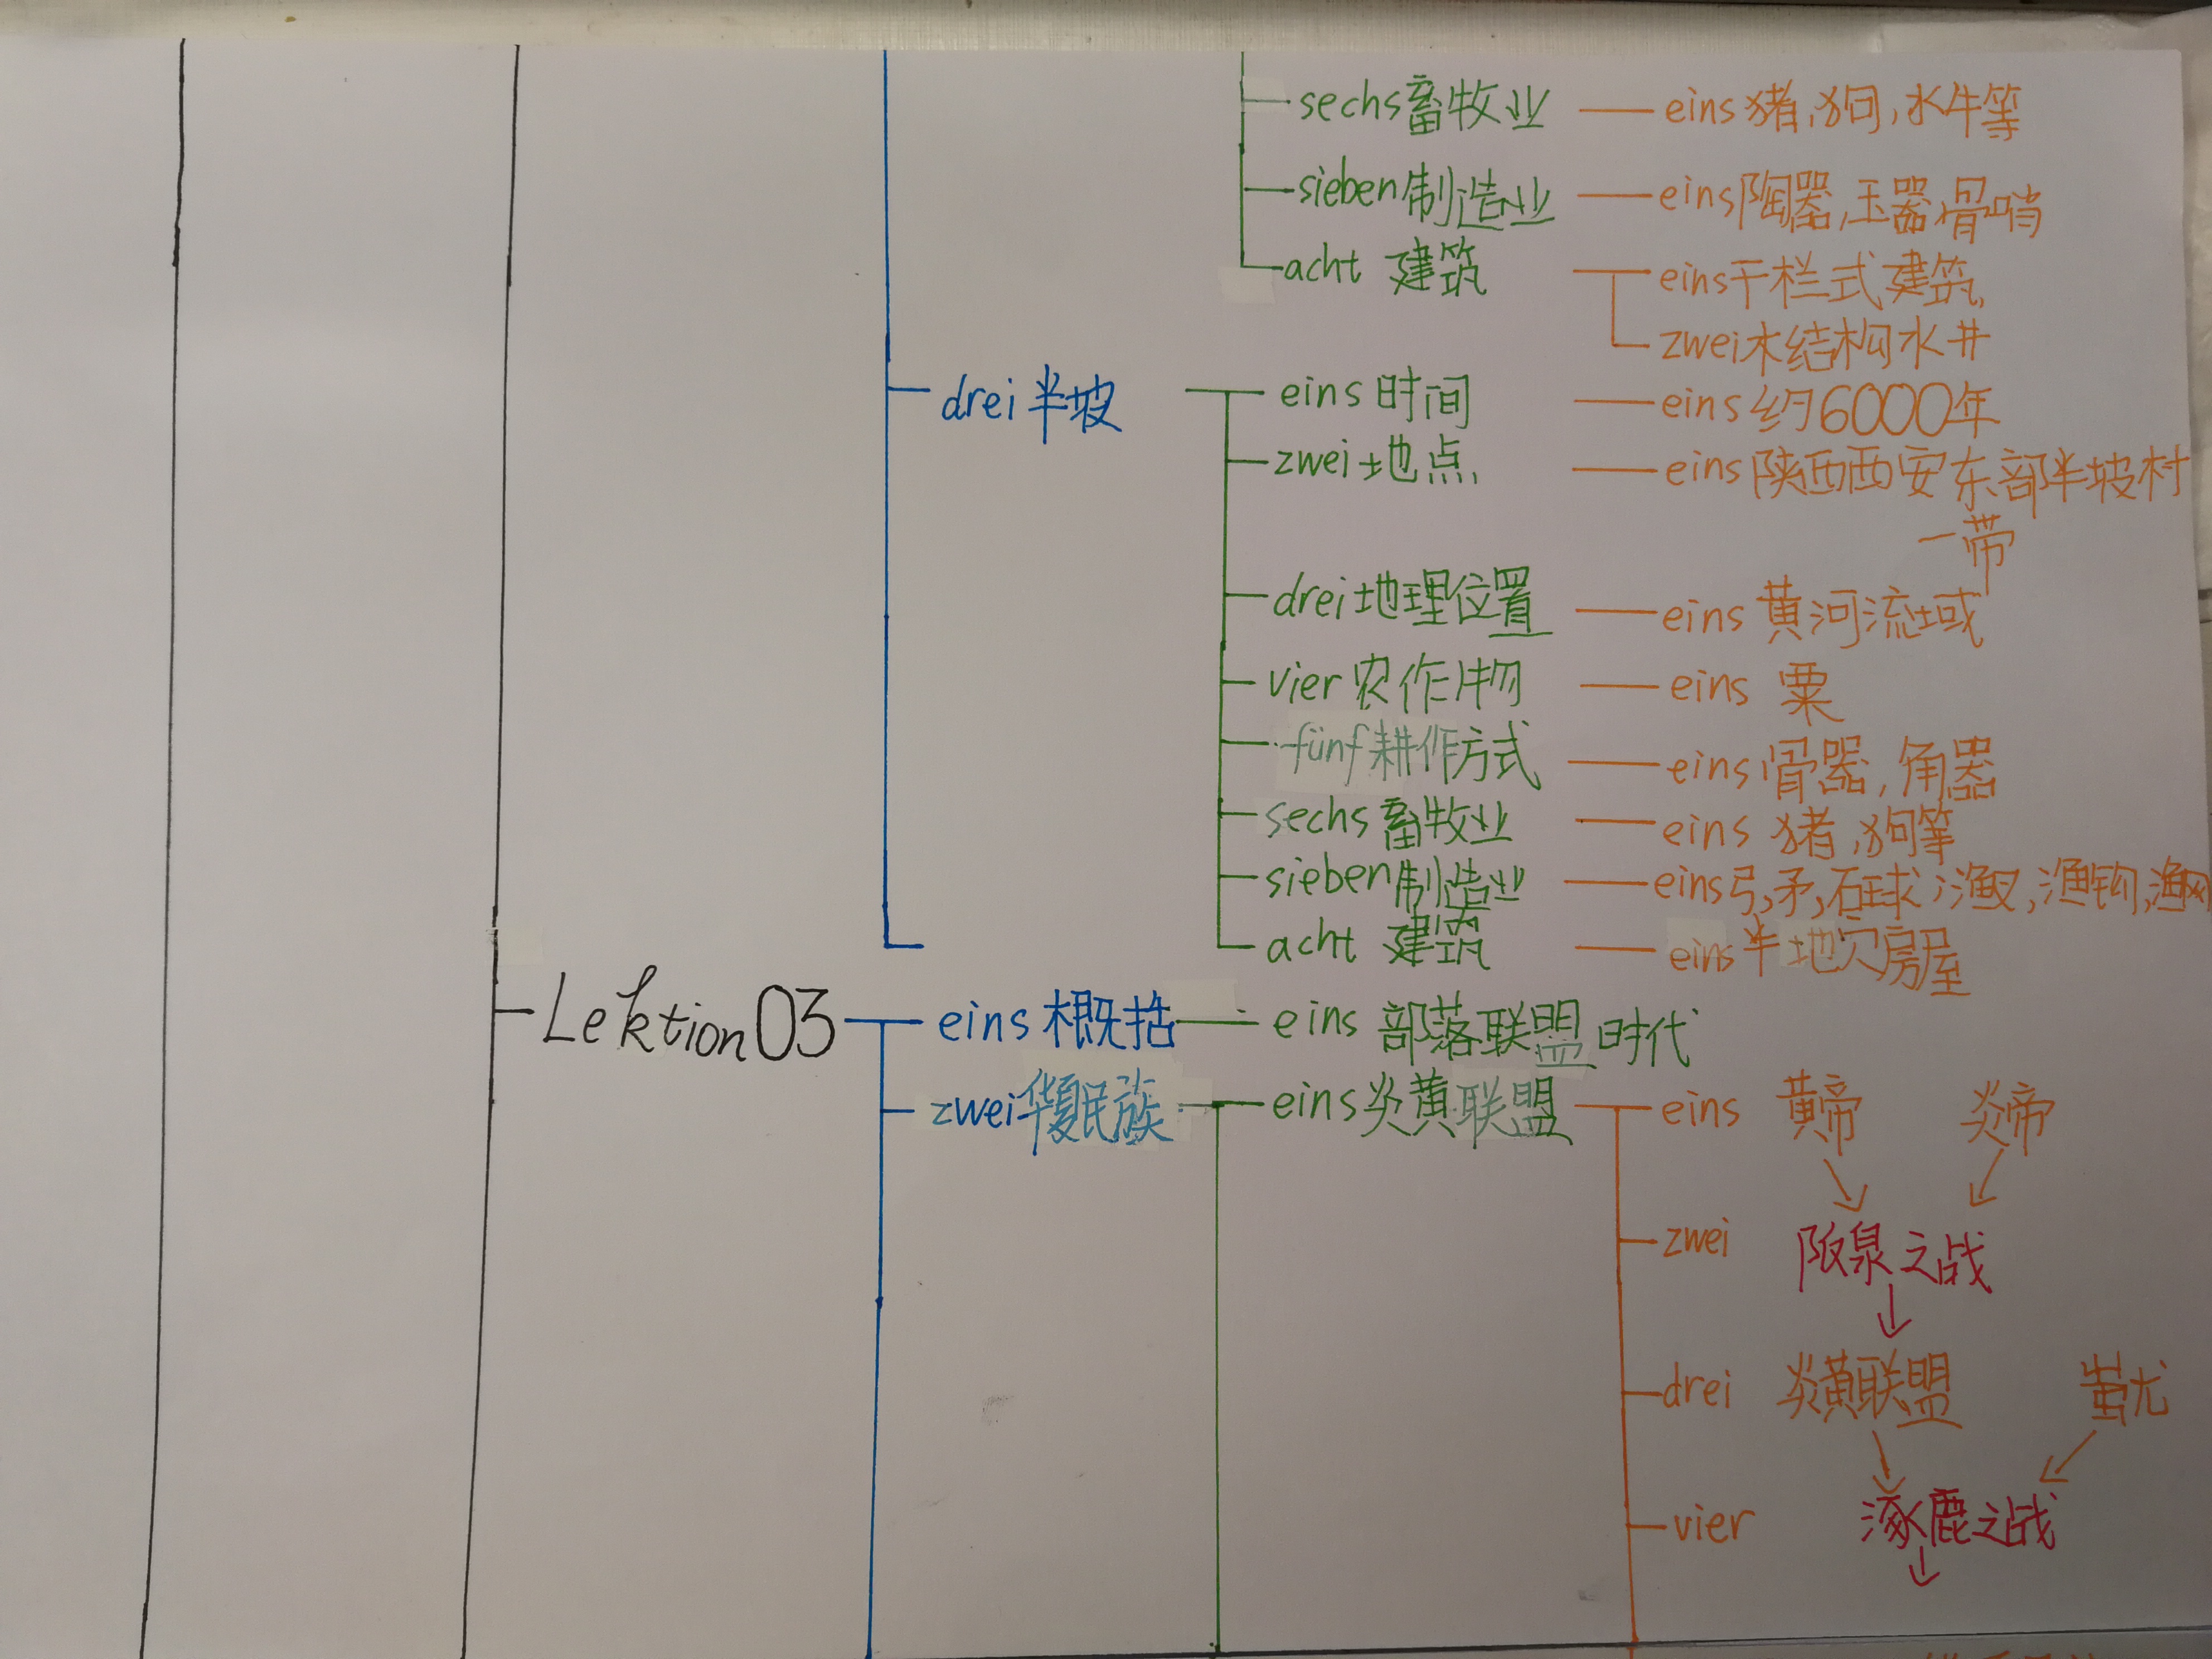 sechs 畜牧业 eins 猪,狗,水牛等
sieben 制造业 eins 陶器,玉器,骨哨
acht 建筑 eins 干栏式建筑
zwei 木结构水井
drei 半坡 eins 时间 eins 约6000年
zwei 地点 eins 陕西西安东部半坡村
一带
drei 地理位置 eins 黄河流域
vier 农作物 eins 粟
fünf 耕作方式 eins 骨器,角器
sechs 畜牧业 eins 猪,狗等
sieben 制造业 eins 弓,矛,石球,渔叉,渔钩,渔网
acht 建筑 eins 半地穴房屋
Lektion 03 eins 概括 eins 部落联盟时代
zwei 华夏民族 eins 炎黄联盟 eins 黄帝 炎帝
zwei 阪泉之战
drei 炎黄联盟 蚩尤
vier 涿鹿之战